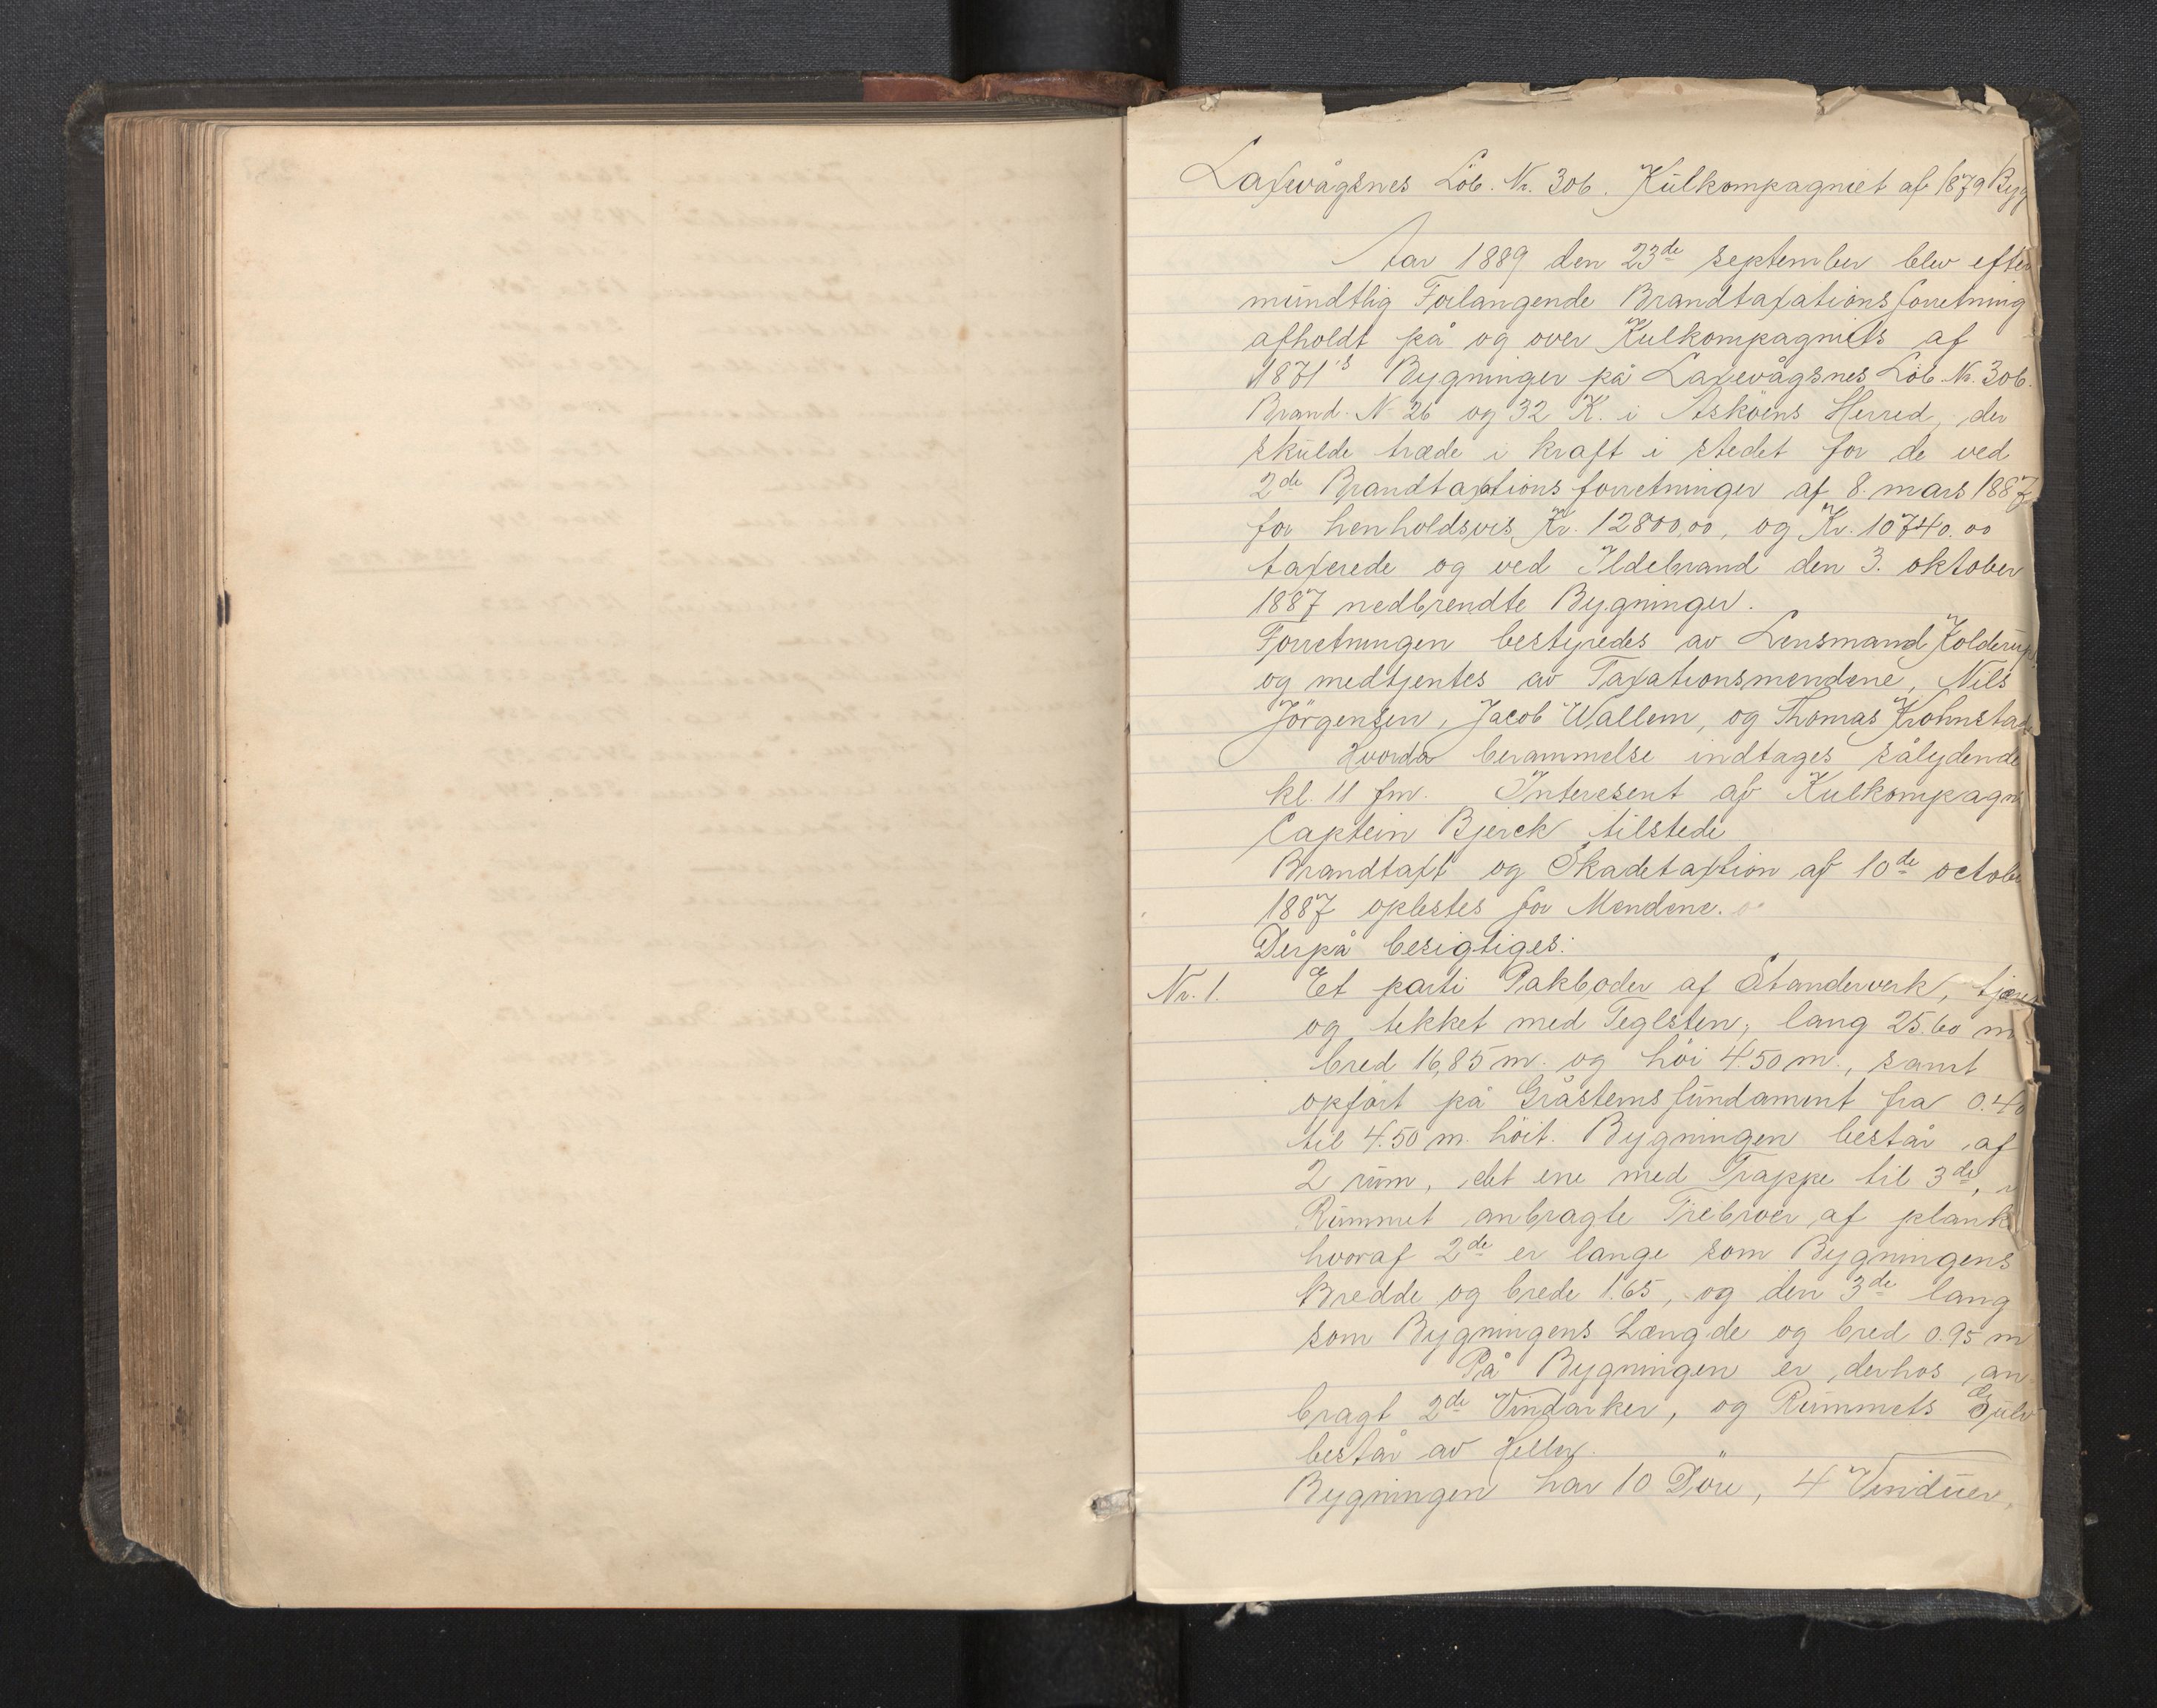 Laxevågsnes Löb. Nr. 306. Kulkompagniet af 1879 Bygg
Aar 1889 den 23de september blev efter
mundtlig Forlangende Brandtaxationsforretning
afholdt på og over Kulkompagniets af
1871's Bygninger på Laxevågsnes Löb. Nr. 306.
Brand. N 26 og 32 K. i Asköens Herred, der
skulde træde i kraft i stedet for de ved
2de Brandtaxtionsforretninger af 8. mars 1887
for henholdsvis Kr. 12800,00, og Kr. 10740.00
taxerede og ved Ildebrand den 3. oktober
1887 nedbrendte Bygninger.
Forretningen bestyredes av Lensmand Kolderup
og medtjentes av Taxationsmendene, Nils
Jörgensen, Jacob Wallem, og Thomas Krohnstad
Hvorda berammelse indtages sålydende
kl. 11 fm. Interesent af Kulkompagni
Captein Bjerck tilstede
Brandtaxt og Skadetaxtion af 10de octobe
1887 oplestes for Mendene.
Derpå besigtiges:
Nr. 1. Et parti Pakboder af Standerverk, tjæret
og tekket med Teglsten, lang 25.60 m
bred 16,85 m. og höi 4.50 m., samt
opfört på Gråstensfundament fra 0.40
til 4.50 m. höit. Bygningen består af
2 rum, det ene med Trappe til 3de, i
Rummet anbragte Trebroer af plank
hvoraf 2de er lange som Bygningens
Bredde og brede 1.65, og den 3de lang
som Bygningens Længde og bred 0.95 m
På Bygningen er derhos an
bragt 2de Vindarker, og Rummets Gulv
består av Heller.
Bygningen har 10 Döre, 4 Vinduer,